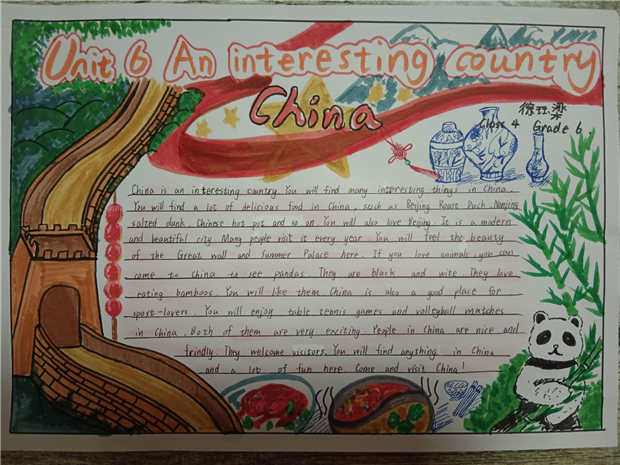 Unit 6 An interesting country
China
Class 4 Grade 6.
China is an interesting country. You will find many interesting things in China.
You will find a lot of delicious food in China, such as Beijing Roast Duck, Nanjing
salted dunk, Chinese hot pot and so on. You will also love Beijing. It is a modern
and beautiful city. Many people visit it every year. You will feel the beauty
of the Great wall and Summer Palace here. If you love animals, you can
come to China to see pandas. They are black and wite. They love
eating bamboos. You will like them. China is also a good place for
sport-lovers. You will enjoy table tennis games and volleyball matches
in China. Both of them are very exciting. People in China are nice and
frindly. They welcome visitors. You will find anything in China
and a lot of fun here. Come and visit China!